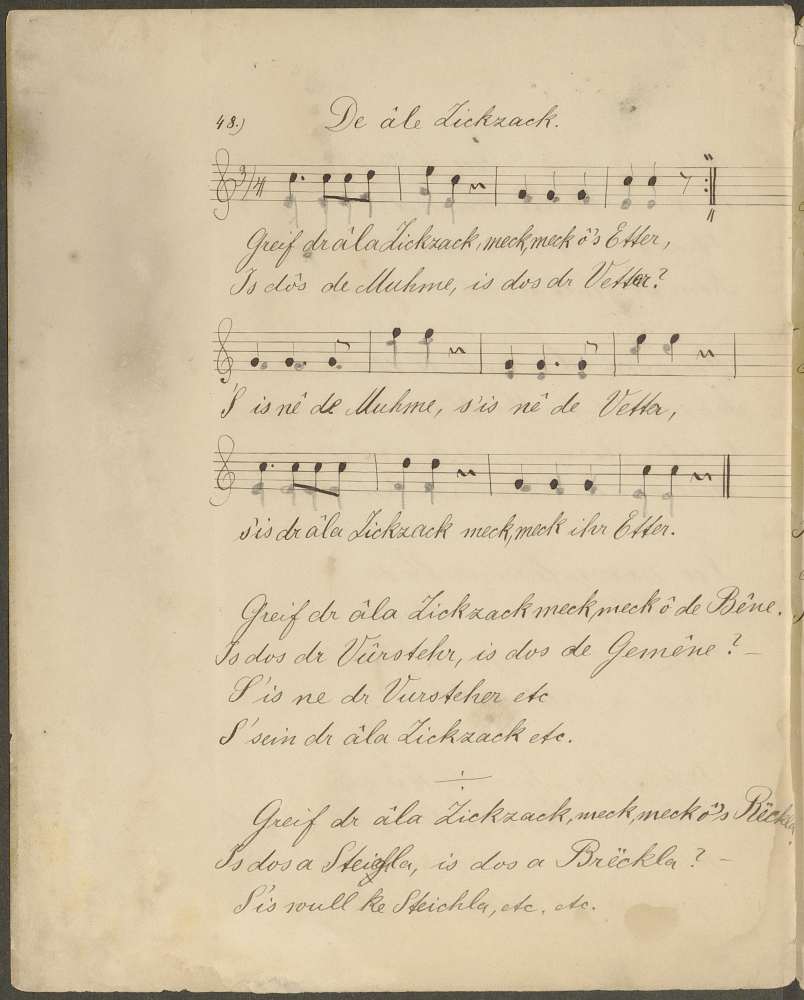 48.) De âle Zickzack.
3/4
Greif dr âla Zickzack, meck, meck ô's Etter,
Is dôs de Muhme, is dos dr Vetter?
'S is nê de Muhme, s'is nê de Vetta,
s'is dr âla Zickzack meck, meck ihr Etter.
Greif dr âla Zickzack meck, meck ô de Bêne.
Is dos dr Vûrstehr, is dos de Gemêne? –
S'is ne dr Vursteher etc
S'sein dr âla Zickzack etc.
Greif dr âla Zickzack, meck, meck ô's
Is dos a Steichla, is dos a Brëckla? –
S'is wull ke Steichla, etc. etc.